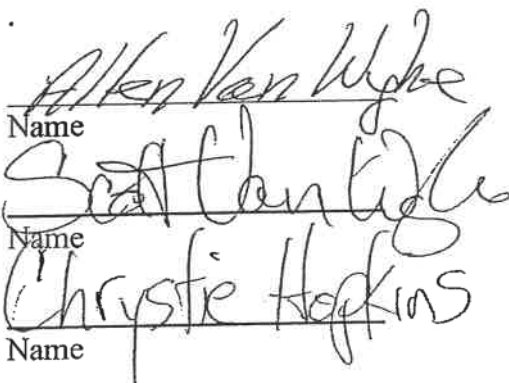 Allen Van Wyhe
Name
Scott Van
Name
Chrystie Hopkins
Name